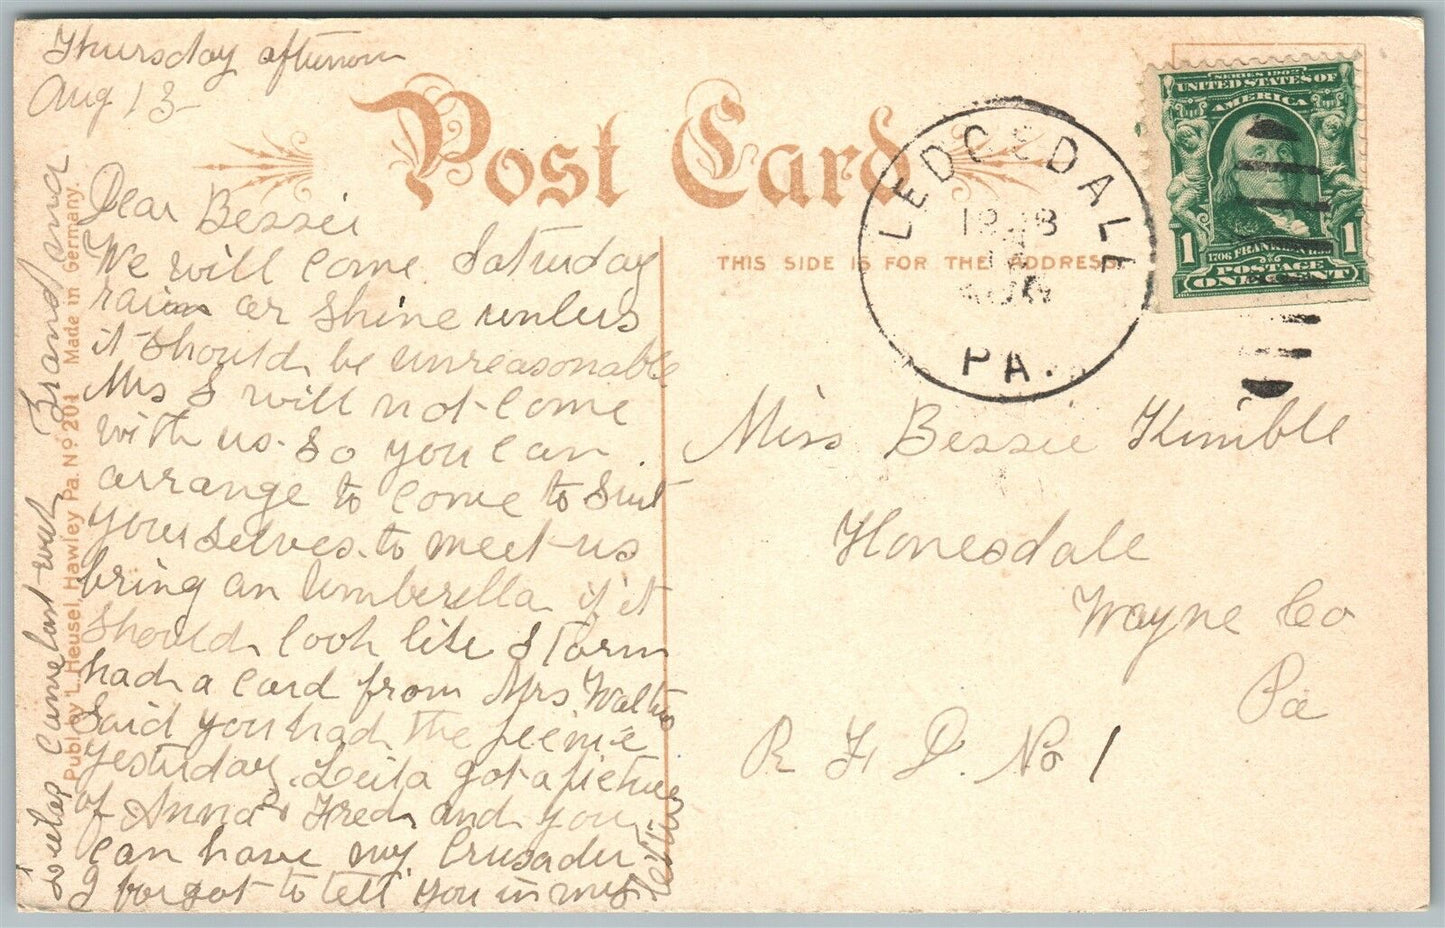 Thursday afternoon
Aug 13
Post Card
THIS SIDE IS FOR THE ADDRESS.
Dear Bessie
We will come Saturday
rain or shine unless
it should be unreasonable
Mrs S will not come
with us. So you can
arrange to come to suit
yourselves. to meet us
bring an umberella if it
should look like storm
had a card from Mrs Walter
Said you had the
yesterday. Leila got a picture
of Anna & Fred and you
can have my Crusader
I forgot to tell you in my
letter
came last week Grand ma
Publ. by L. Heusel, Hawley Pa. No 201 Made in Germany.
LEDGEDALE
1908
AUG
PA.
SERIES 1902
UNITED STATES OF
AMERICA
1706 FRANKLIN
1 1
POSTAGE
ONE CENT
Miss Bessie Kimble
Honesdale
Wayne Co
Pa
R F D. No 1